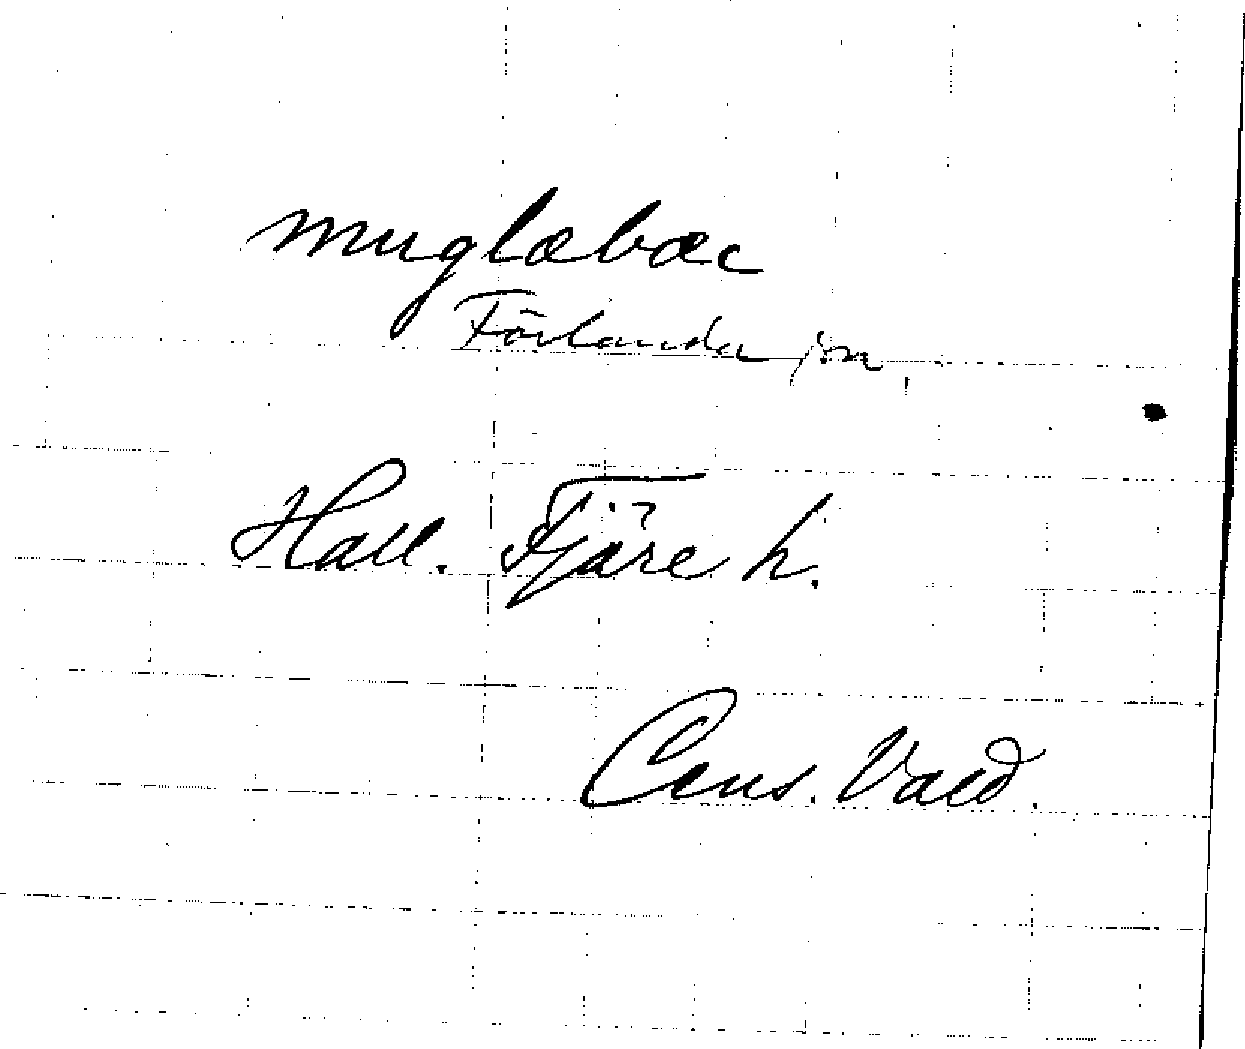 muglæbæc
Förlanda sn
Hall. Fjäre h.
Cens. Vald.